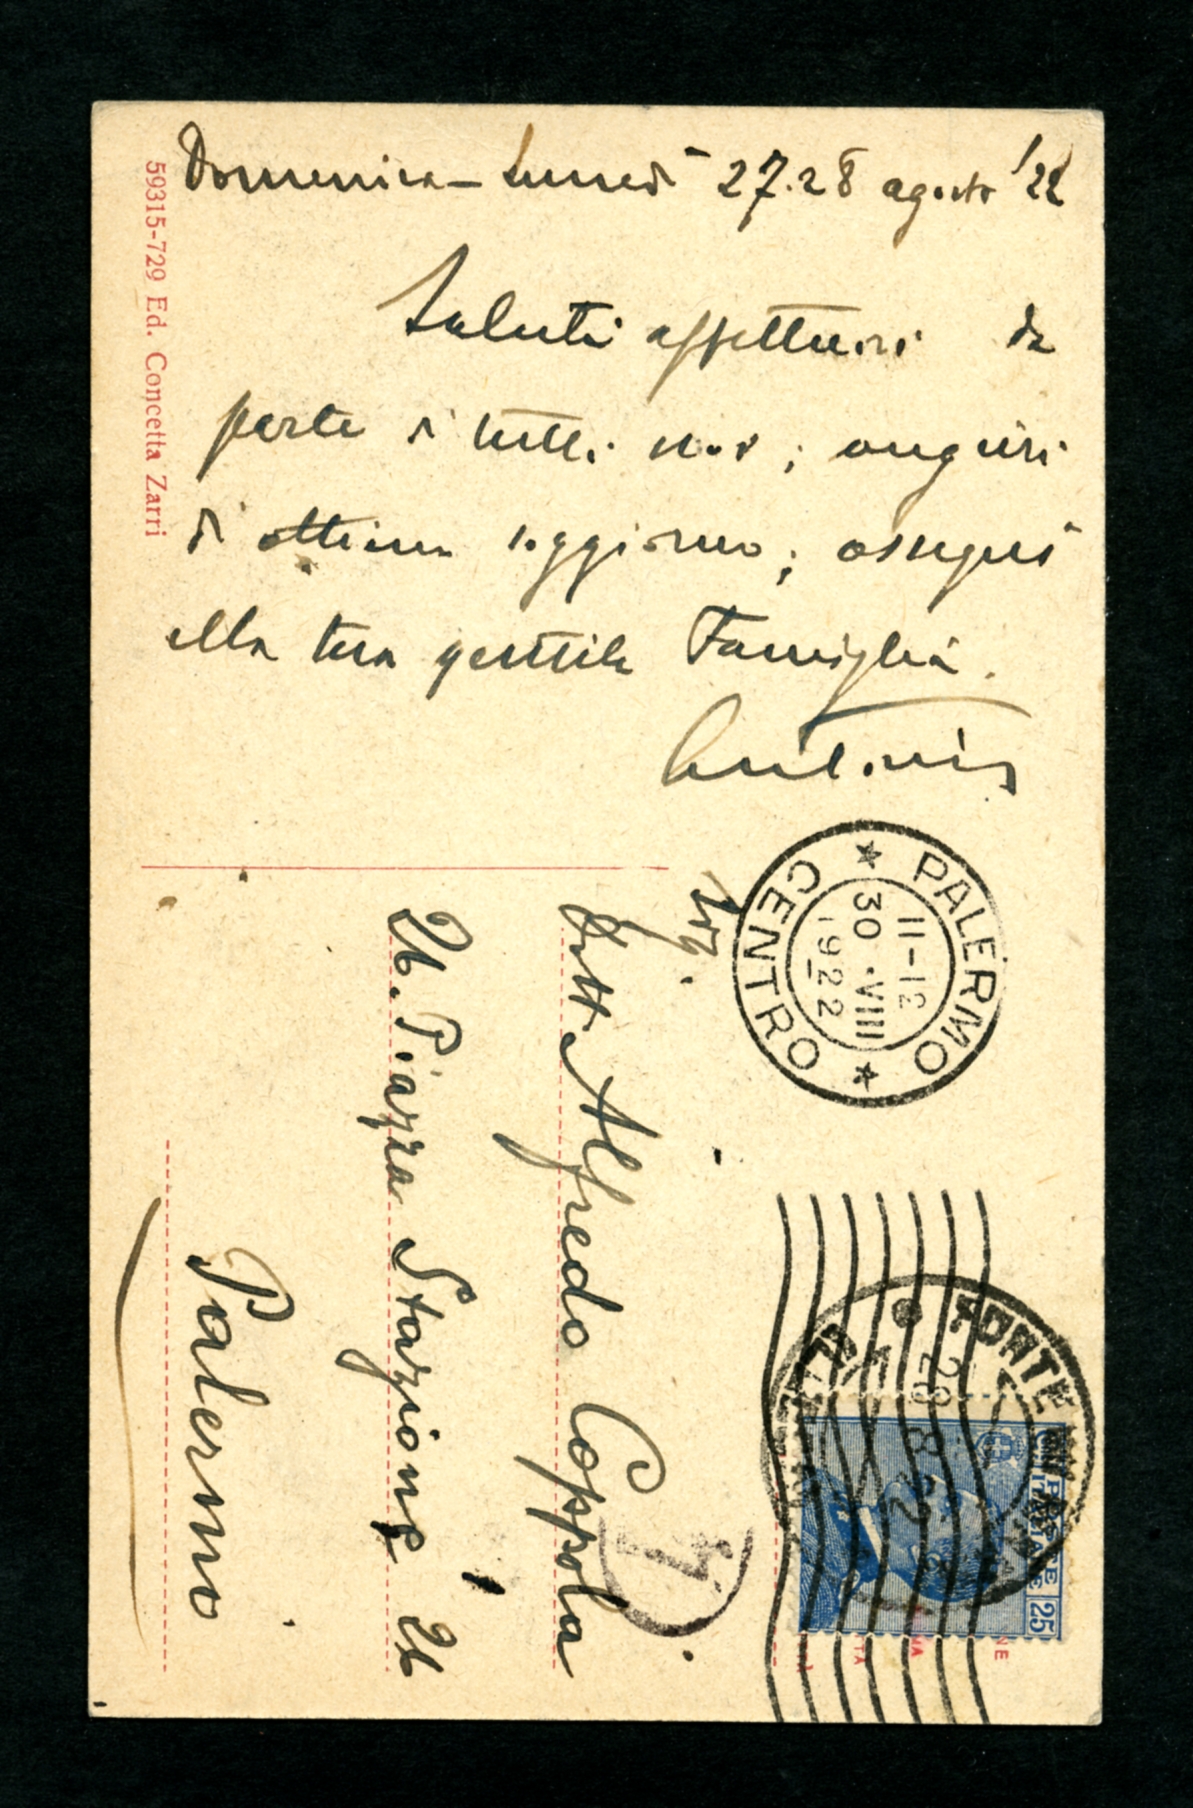 Domenica - Lunedì 27.28 agosto '22
Saluti affettuosi da
parte di tutti noi; auguri
di ottimo soggiorno; ossequi
alla tua gentile Famiglia.
Antonio
59315-729 Ed. Concetta Zarri
PALERMO CENTRO
11-12
30 · VIII
1922
Dott Alfredo Coppola
26. Piazza Stazione 26
Palermo
FORTE
28 8 22
POSTE ITALIANE 25